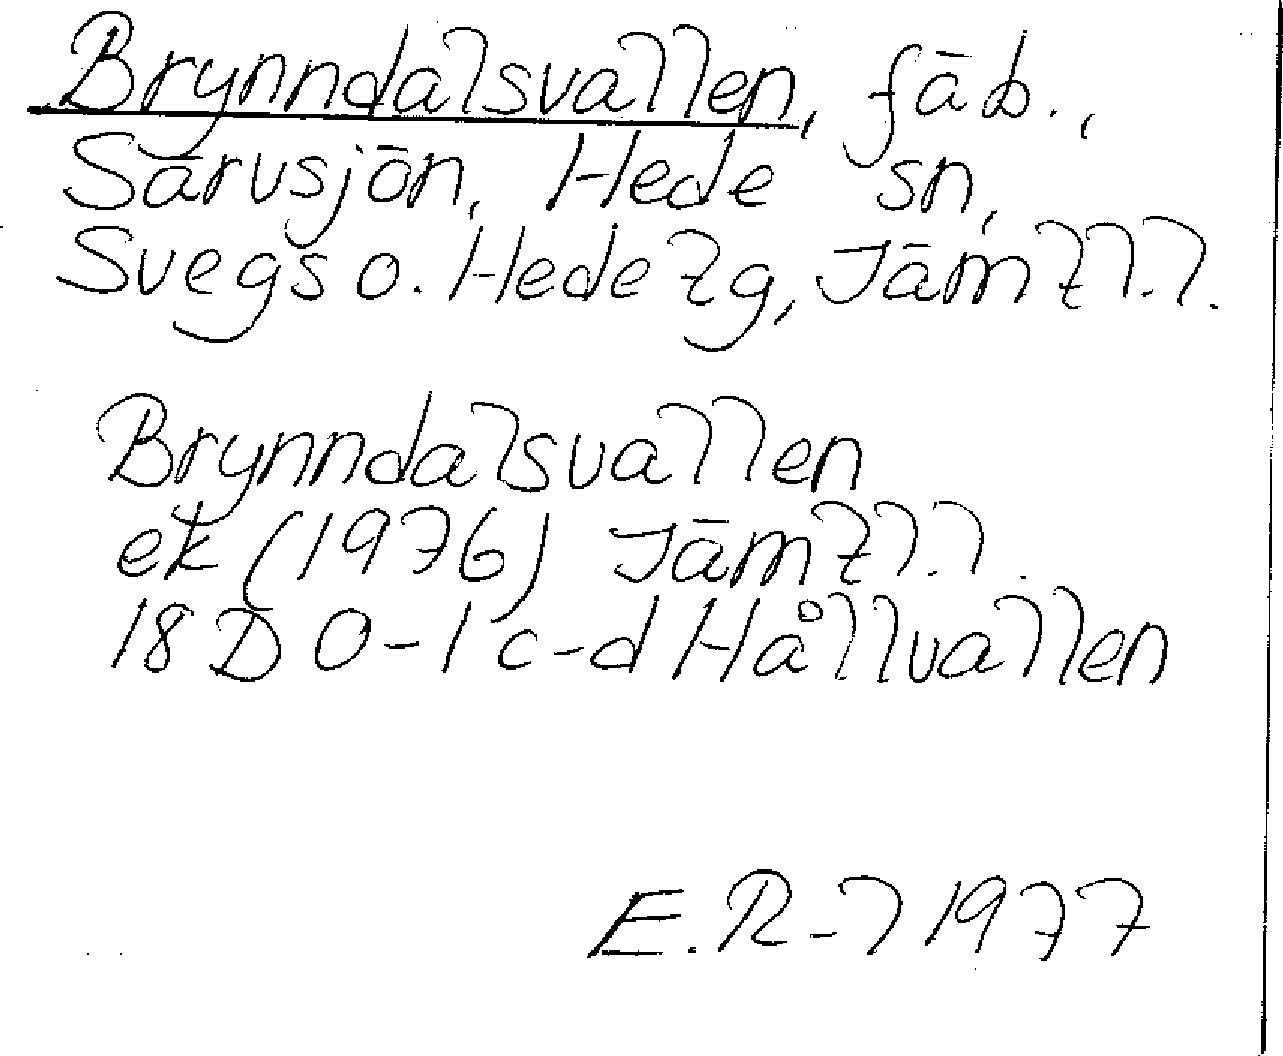 Brynndalsvallen, fäb.,
Särvsjön, Hede sn,
Svegs o. Hede tg, Jämtl.l.
Brynndalsvallen
ek (1976) Jämtl.l.
18 D 0-1 c-d Hållvallen
E.R-l 1977